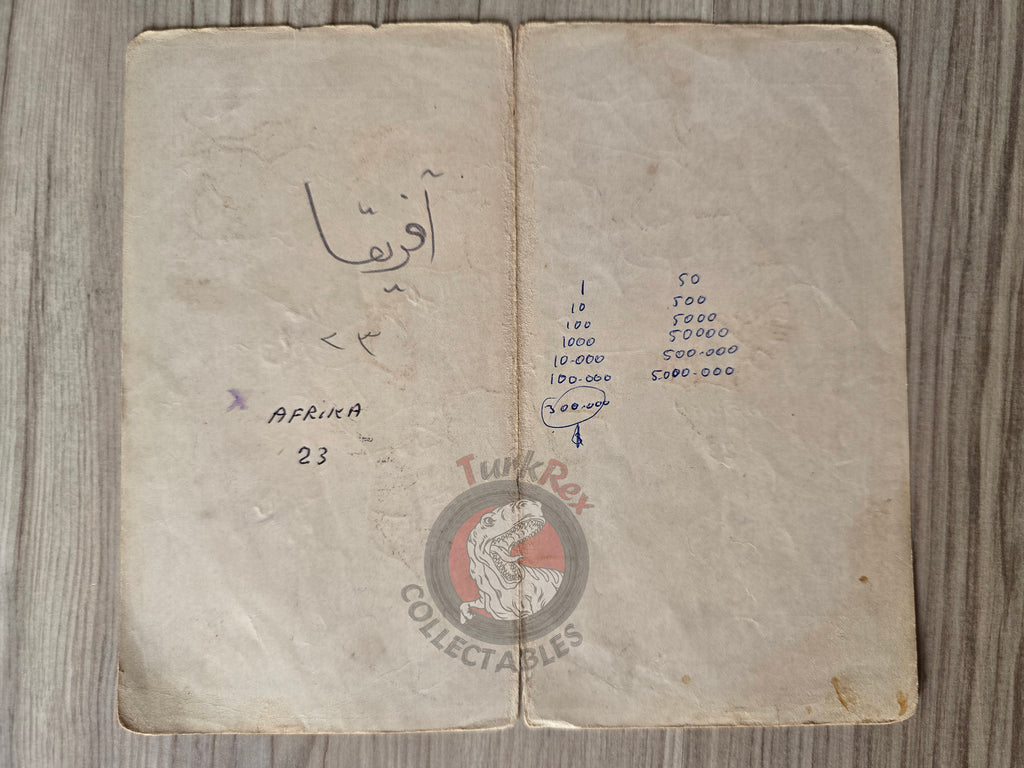 آفريقا
٢٣
AFRiKA
23
1
10
100
1000
10-000
100-000
300.000
50
500
5000
50000
500-000
5.000-000
TurkRex
COLLECTABLES